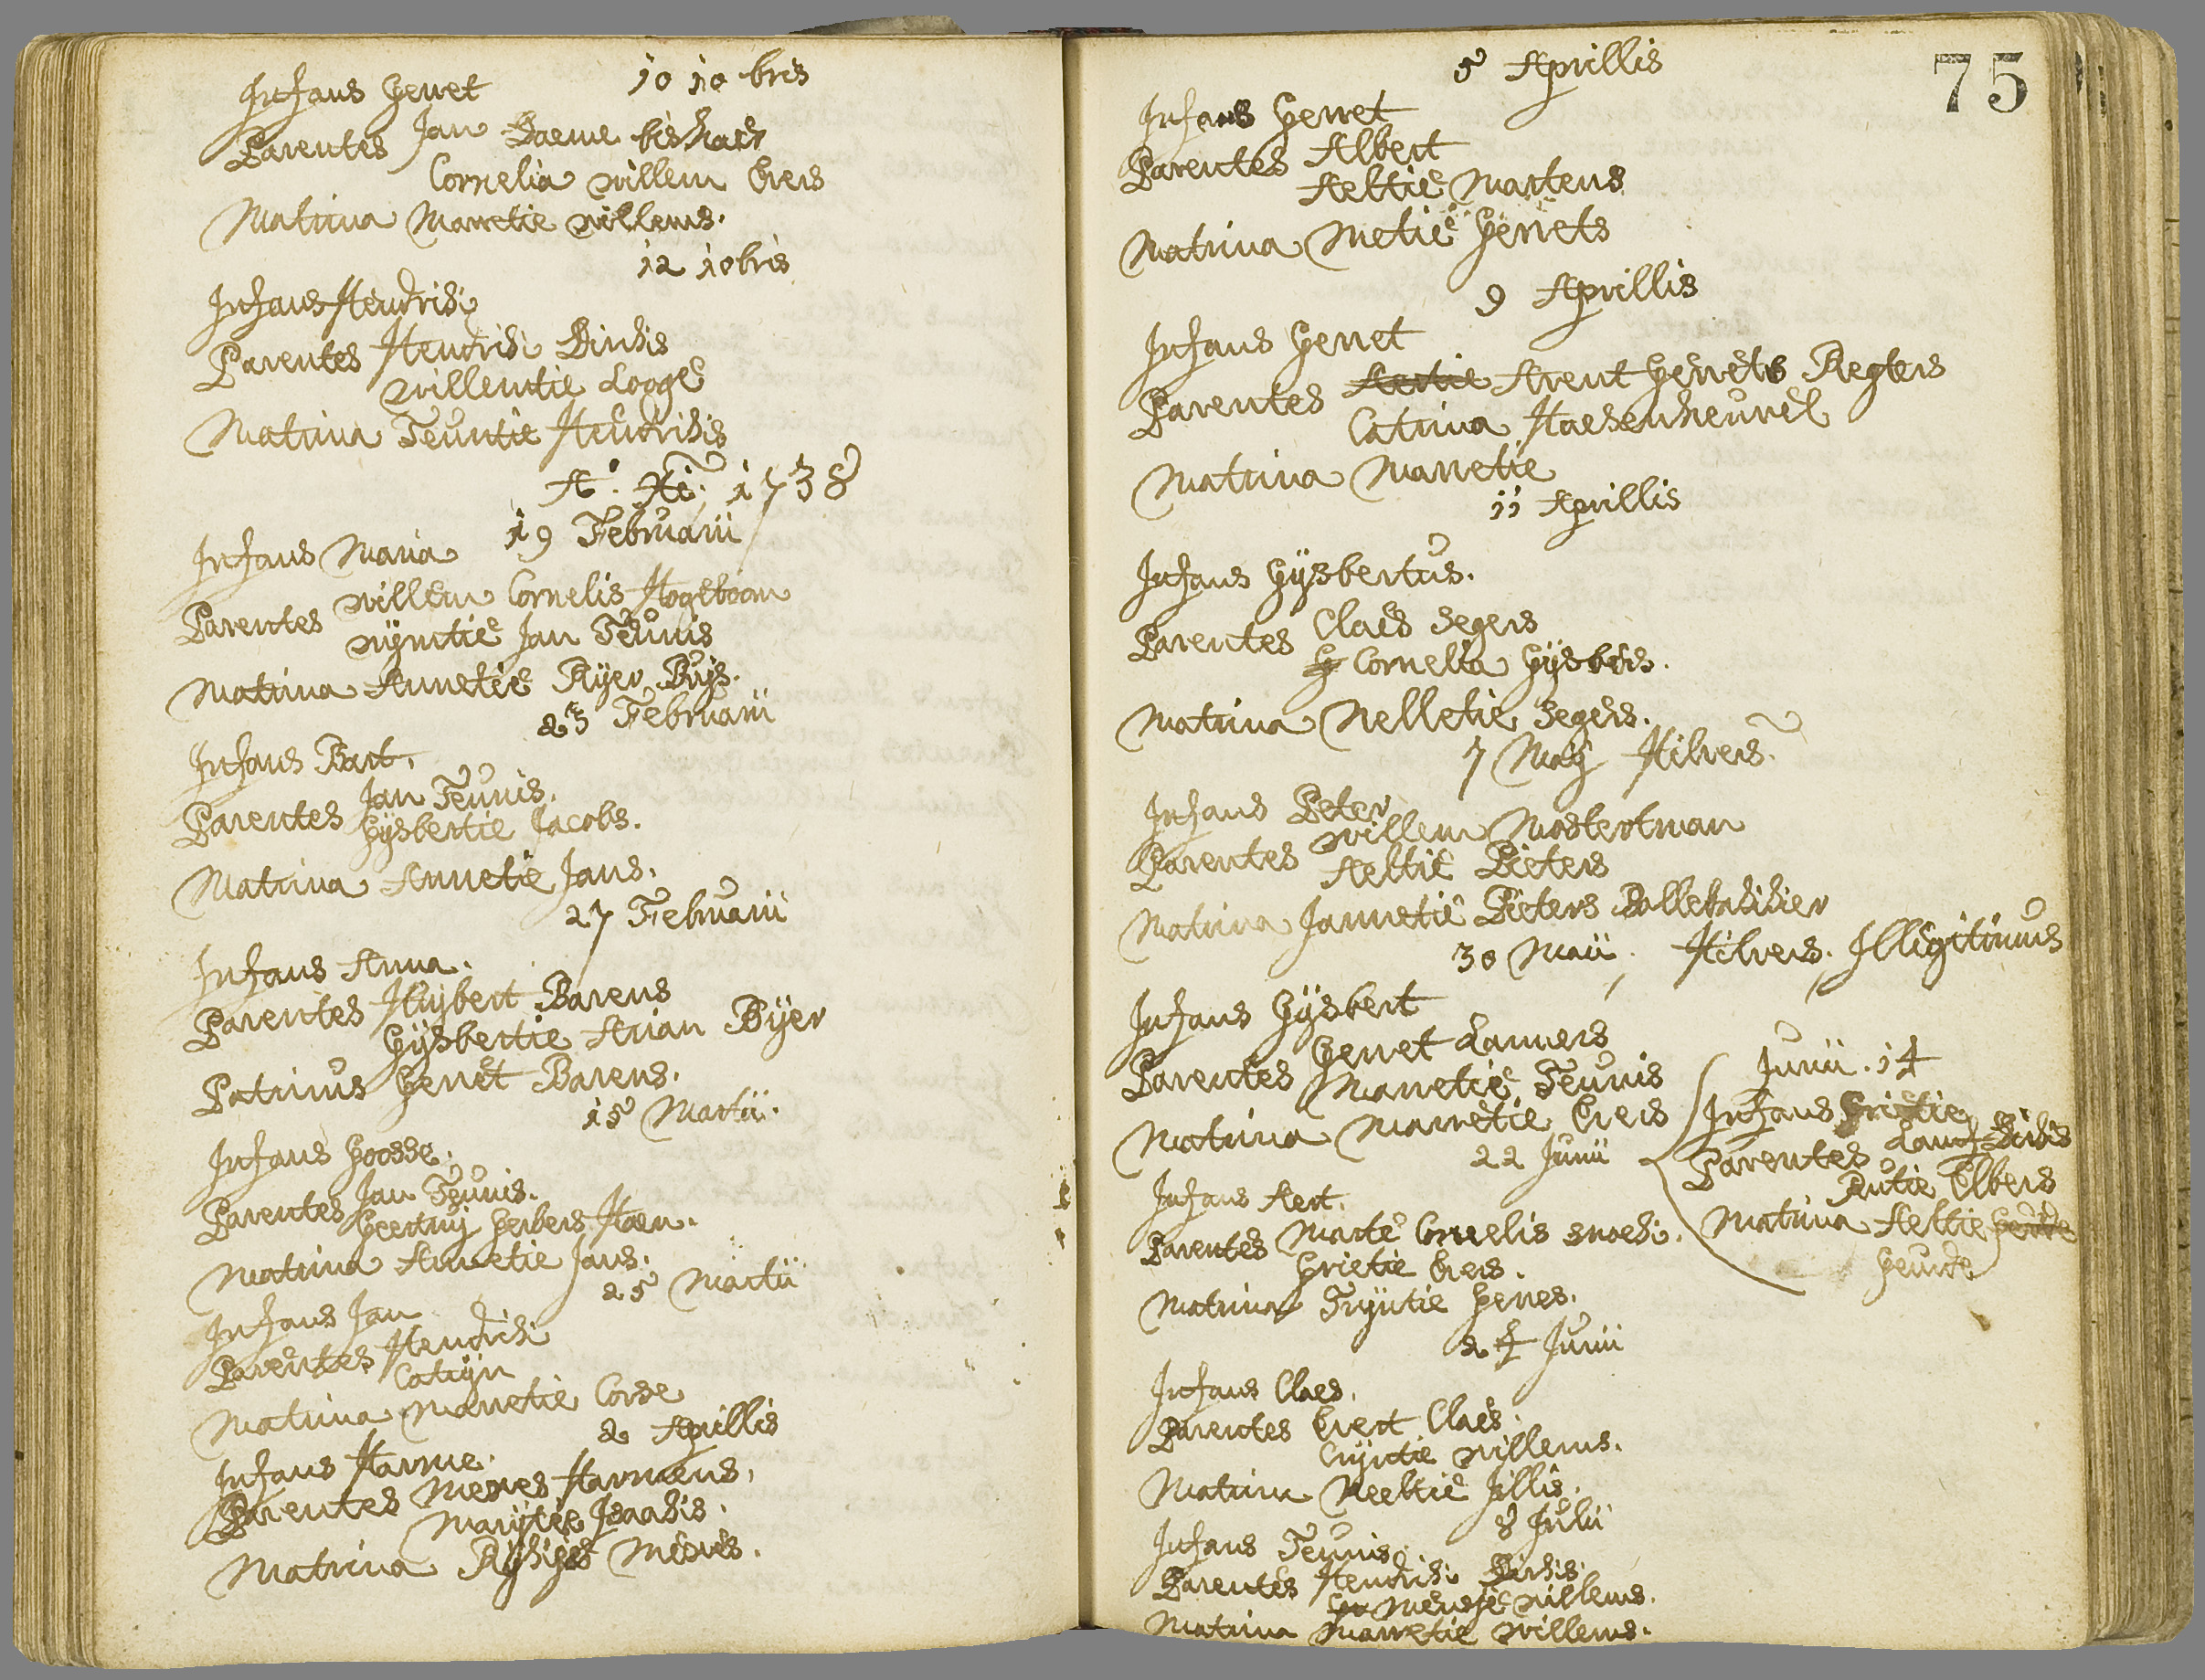 10 10 bris
Infans Gerret
Parentes Jan Daeme bishaer
Cornelia willem Evers
Matrina Marretie willems.
12 10bris
Infans Hendrik
Parentes Hendrik Dirkis
willemtie Looge
Matrina Teuntie Hendrikis
Ao. Xi. 1738
19 Februarii
Infans Maria
Parentes willem Cornelis Hogeboom
wijmtie Jan Teunis
Matrina Annetie Rÿer Buÿs.
23 Februarii
Infans Bart.
Parentes Jan Teunis.
Gÿsbertie Jacobs.
Matrina Annetie Jans.
27 Februarii
Infans Anna.
Parentes Huijbert Barens
Gÿsbertie Arian Bÿer
Patrinus Gerret Barens.
15 Martii.
Infans Goosse.
Parentes Jan Teunis.
Geertruij Gerbers Haen.
Matrina Annetie Jans.
25 Martii
Infans Jan
Parentes Hendrik
Catrijn
Matrina Marretie Corse
2 Aprillis
Infans Harme.
Parentes Meeues Harmens.
Marijtie Isaakis.
Matrina Meeues.
75
5 Aprillis
Infans Gerret
Parentes Albert
Aeltie Martens
Matrina Metie Gerrets
9 Aprillis
Infans Gerret
Parentes Aertie Arent Gerrets Regters
Catrina Haesenheuvel
Matrina Marretie
11 Aprillis
Infans Gÿsbertus.
Parentes Claes Segers
G Cornelia Gÿsbers.
Matrina Nelletie Segers.
7 Maÿ Hilvers.
Infans Peter
Parentes willem Mostertman
Aeltie Pieters
Matrina Jannetie Pieters Ballebakkier
30 Maii. Hilvers. Illegitimus
Infans Gÿsbert
Parentes Gerret Lamers
Marretie Teunis
Matrina Marretie Evers
Junii. 14
Infans Grietie
Parentes Lamf Dirkis
Rutie Elbers
Matrina Aeltie Geurde
Geurde
22 Junii
Infans Aert.
Parentes Marte Cornelis snoek.
Grietie Evers.
Matrina Trÿntie Gerres.
24 Junii
Infans Claes.
Parentes Evert Claes.
Crÿntie willems.
Matrina Neeltie Jillis.
8 Julii
Infans Teunis.
Parentes Hendrik Dirkis
Meusje willems.
Matrina Marretie willems.